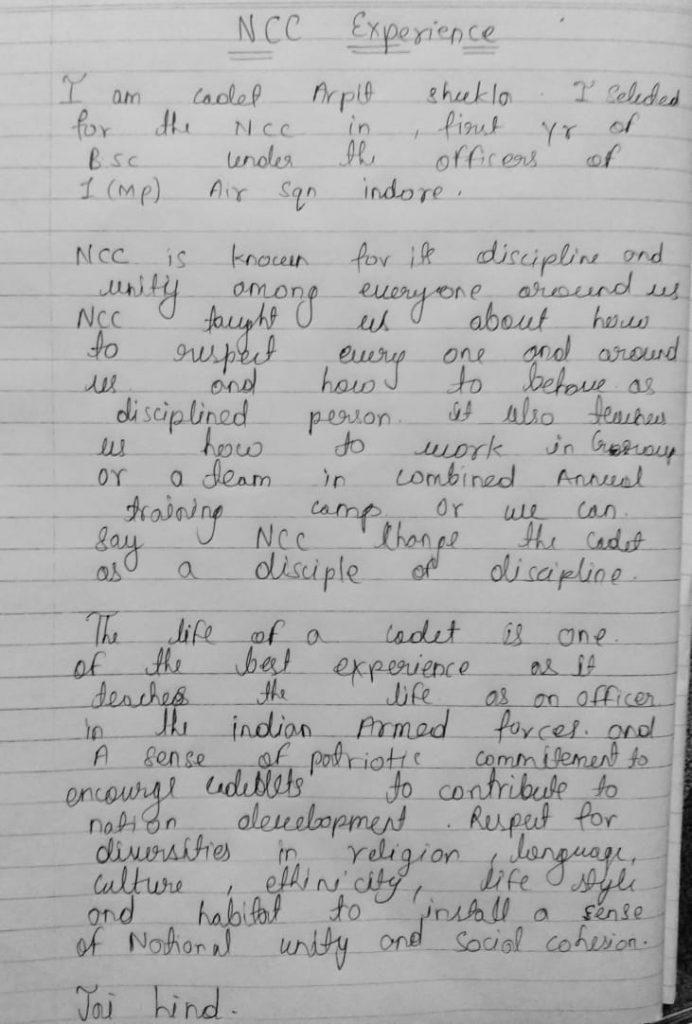 NCC Experience
I am cadet Arpit shukla. I Selected
for the NCC in , first yr of
BSC under the officers of
1 (MP) Air Sqn indore.
NCC is known for its discipline and
unity among everyone around us
NCC taught us about how
to respect every one and around
us and how to behave as
disciplined person. it also teaches
us how to work in Group
or a team in combined Annual
training camp. Or we can.
Say NCC Change the Cadet
as a disciple of discipline.
The life of a cadet is one.
of the best experience as it
teaches the life as an officer
in the indian Armed forces. and
A sense of patriotic commitement to
encourge to contribute to
nation development. Respect for
diversities in religion, language,
culture, ethinicity, life style
and habitat to install a sense
of National unity and social cohesion.
Jai hind.